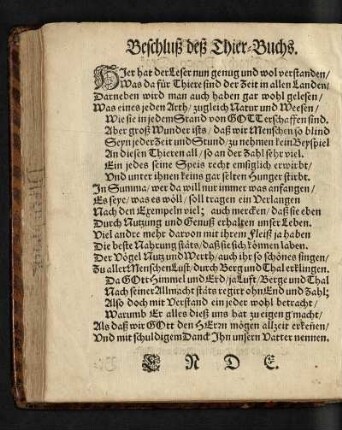 Beschluß deß Thier-Buchs.
HIer hat der Leser nun genug und wol verstanden/
Was da für Thiere sind der Zeit in allen Landen/
Darneben wird man auch haben gar wohl gelesen/
Was eines jeden Arth/ zugleich Natur und Weesen/
Wie sie in jedem Stand von GOTT erschaffen sind.
Aber groß Wunder ists/ daß wir Menschen so blind
Seyn jeder Zeit und Stund/ zu nehmen kein Beyspiel
An diesen Thieren all/ so an der Zahl sehr viel.
Ein jedes seine Speis recht emsiglich erwirbt/
Und unter ihnen keins gar selten Hunger stirbt.
In Summa/ wer da will nur immer was anfangen/
Es seye/ was es wöll/ soll tragen ein Verlangen
Nach den Exempeln viel; auch mercken/ daß sie eben
Durch Nutzung und Genuß erhalten unser Leben.
Viel ander mehr darvon mit ihrem Fleiß ja haben
Die beste Nahrung stäts/ daß sie sich können laben.
Der Vögel Nutz und Werth/ auch ihr so schönes singen/
Zu aller Menschen Lust/ durch Berg und Thal erklingen.
Da GOtt Himmel und Erd/ ja Luft/ Berge und Thal
Nach seiner Allmacht stäts regirt ohn End und Zahl;
Also doch mit Verstand ein jeder wohl betracht/
Warumb Er alles dieß uns hat zu eigen g'macht/
Als daß wir GOtt den HErrn mögen allzeit erkeñen/
Und mit schuldigem Danck Ihn unsern Vatter nennen.
E N D E.